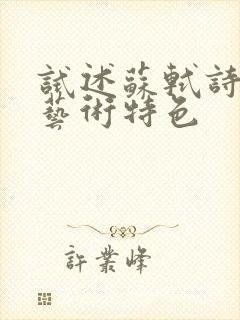 試述蘇軾詩
藝術特色
許業峰